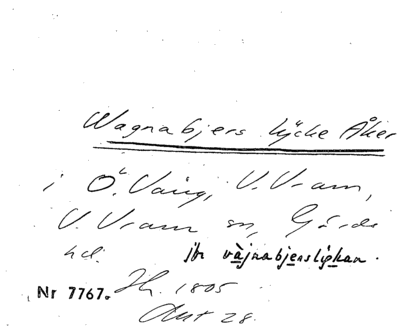 Wagnabjers lycke Åker
i Ö. Vång, V. Vram,
V. Vram sn, Gärds
hd. jfr vàjnabjerslýkan.
Nr 7767. Jb. 1805
Akt 28.